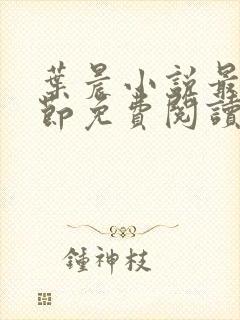 葉晨小說最
節免費閱讀
鍾神枝